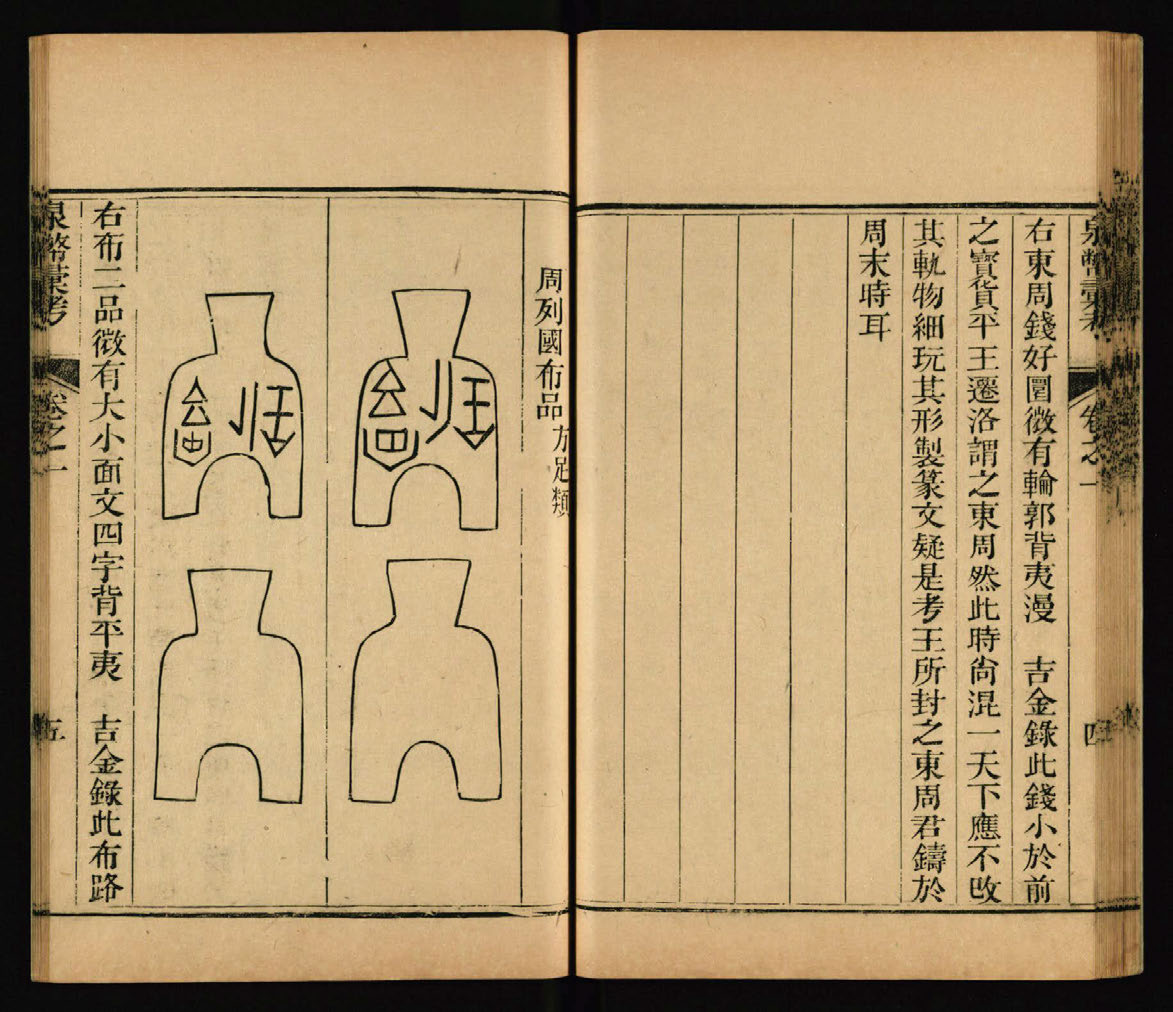 泉幣彙考
卷之一
四
右東周錢好圜微有輪郭背夷漫　吉金錄此錢小於前
之寶貨平王遷洛謂之東周然此時尚混一天下應不改
其軌物細玩其形製篆文疑是考王所封之東周君鑄於
周末時耳
周列國布品方足類
右布二品微有大小面文四字背平夷　吉金錄此布路
泉幣彙考
卷之一
五